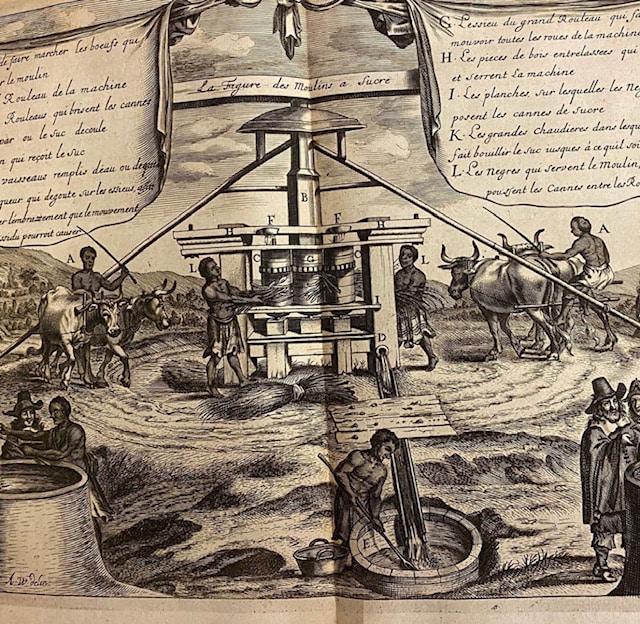 de faire marcher les boeufs qui
er le moulin
Rouleau de la machine
Rouleaux qui brisent les cannes
par ou le suc decoule
n qui reçoit le suc
vaisseaux remplis deau ou de
queur qui degoute sur les essieux, affin
er lembrassement que le mouvement
endu pourroit causer
La Figure des Moulins a Sucre
G. Lessieu du grand Rouleau qui f
mouvoir toutes les roues de la machine
H. Les pieces de bois entrelassees qui
et serrent la machine
I. Les planches, sur lesquelles les Neg
posent les cannes de sucre
K. Les grandes chaudieres dans lesqu
fait bouillir le suc iusques à ce quil soit
L. Les Negres qui servent le Moulin
poussent les Cannes entre les Ro
A
B
H
F
F
H
C
G
C
L
L
A
D
E
A. W. delin.